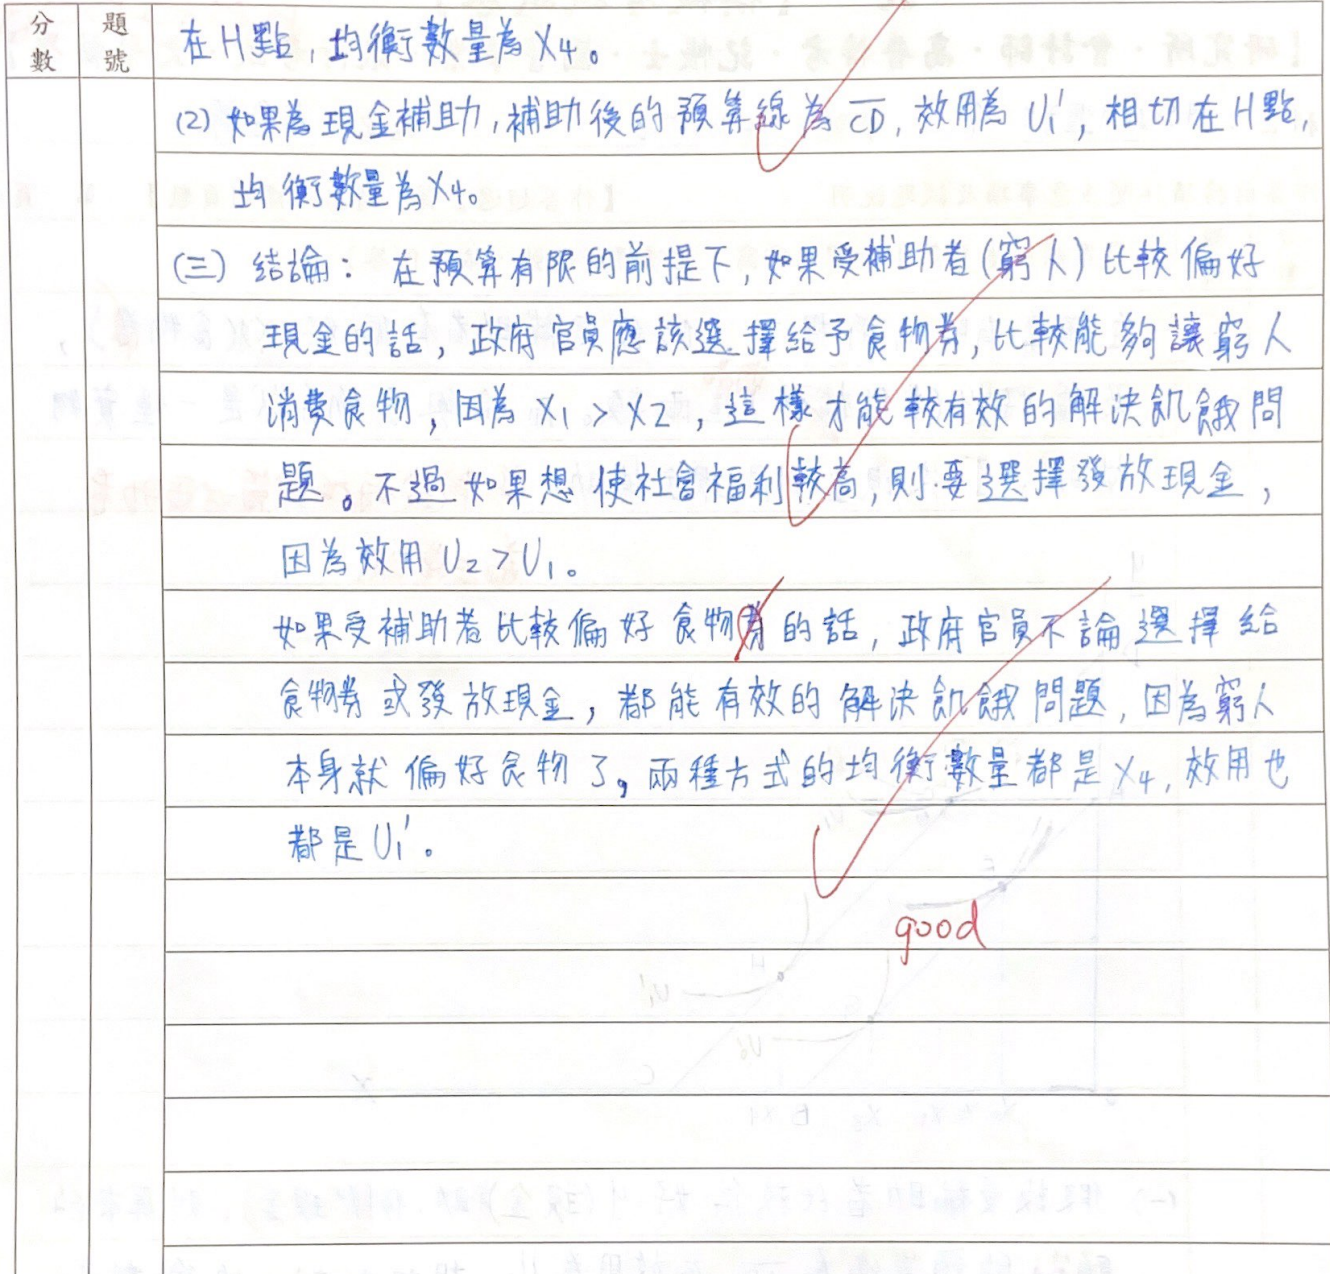 分數
題號
在H點，均衡數量為X4。
(2) 如果為現金補助，補助後的預算線為CD，效用為U1'，相切在H點，
均衡數量為X4。
(三) 結論：在預算有限的前提下，如果受補助者(窮人)比較偏好
現金的話，政府官員應該選擇給予食物券，比較能夠讓窮人
消費食物，因為X1>X2，這樣才能較有效的解決飢餓問
題。不過如果想使社會福利較高，則要選擇發放現金，
因為效用U2>U1。
如果受補助者比較偏好食物券的話，政府官員不論選擇給
食物券或發放現金，都能有效的解決飢餓問題，因為窮人
本身就偏好食物了，兩種方式的均衡數量都是X4，效用也
都是U1'。
good